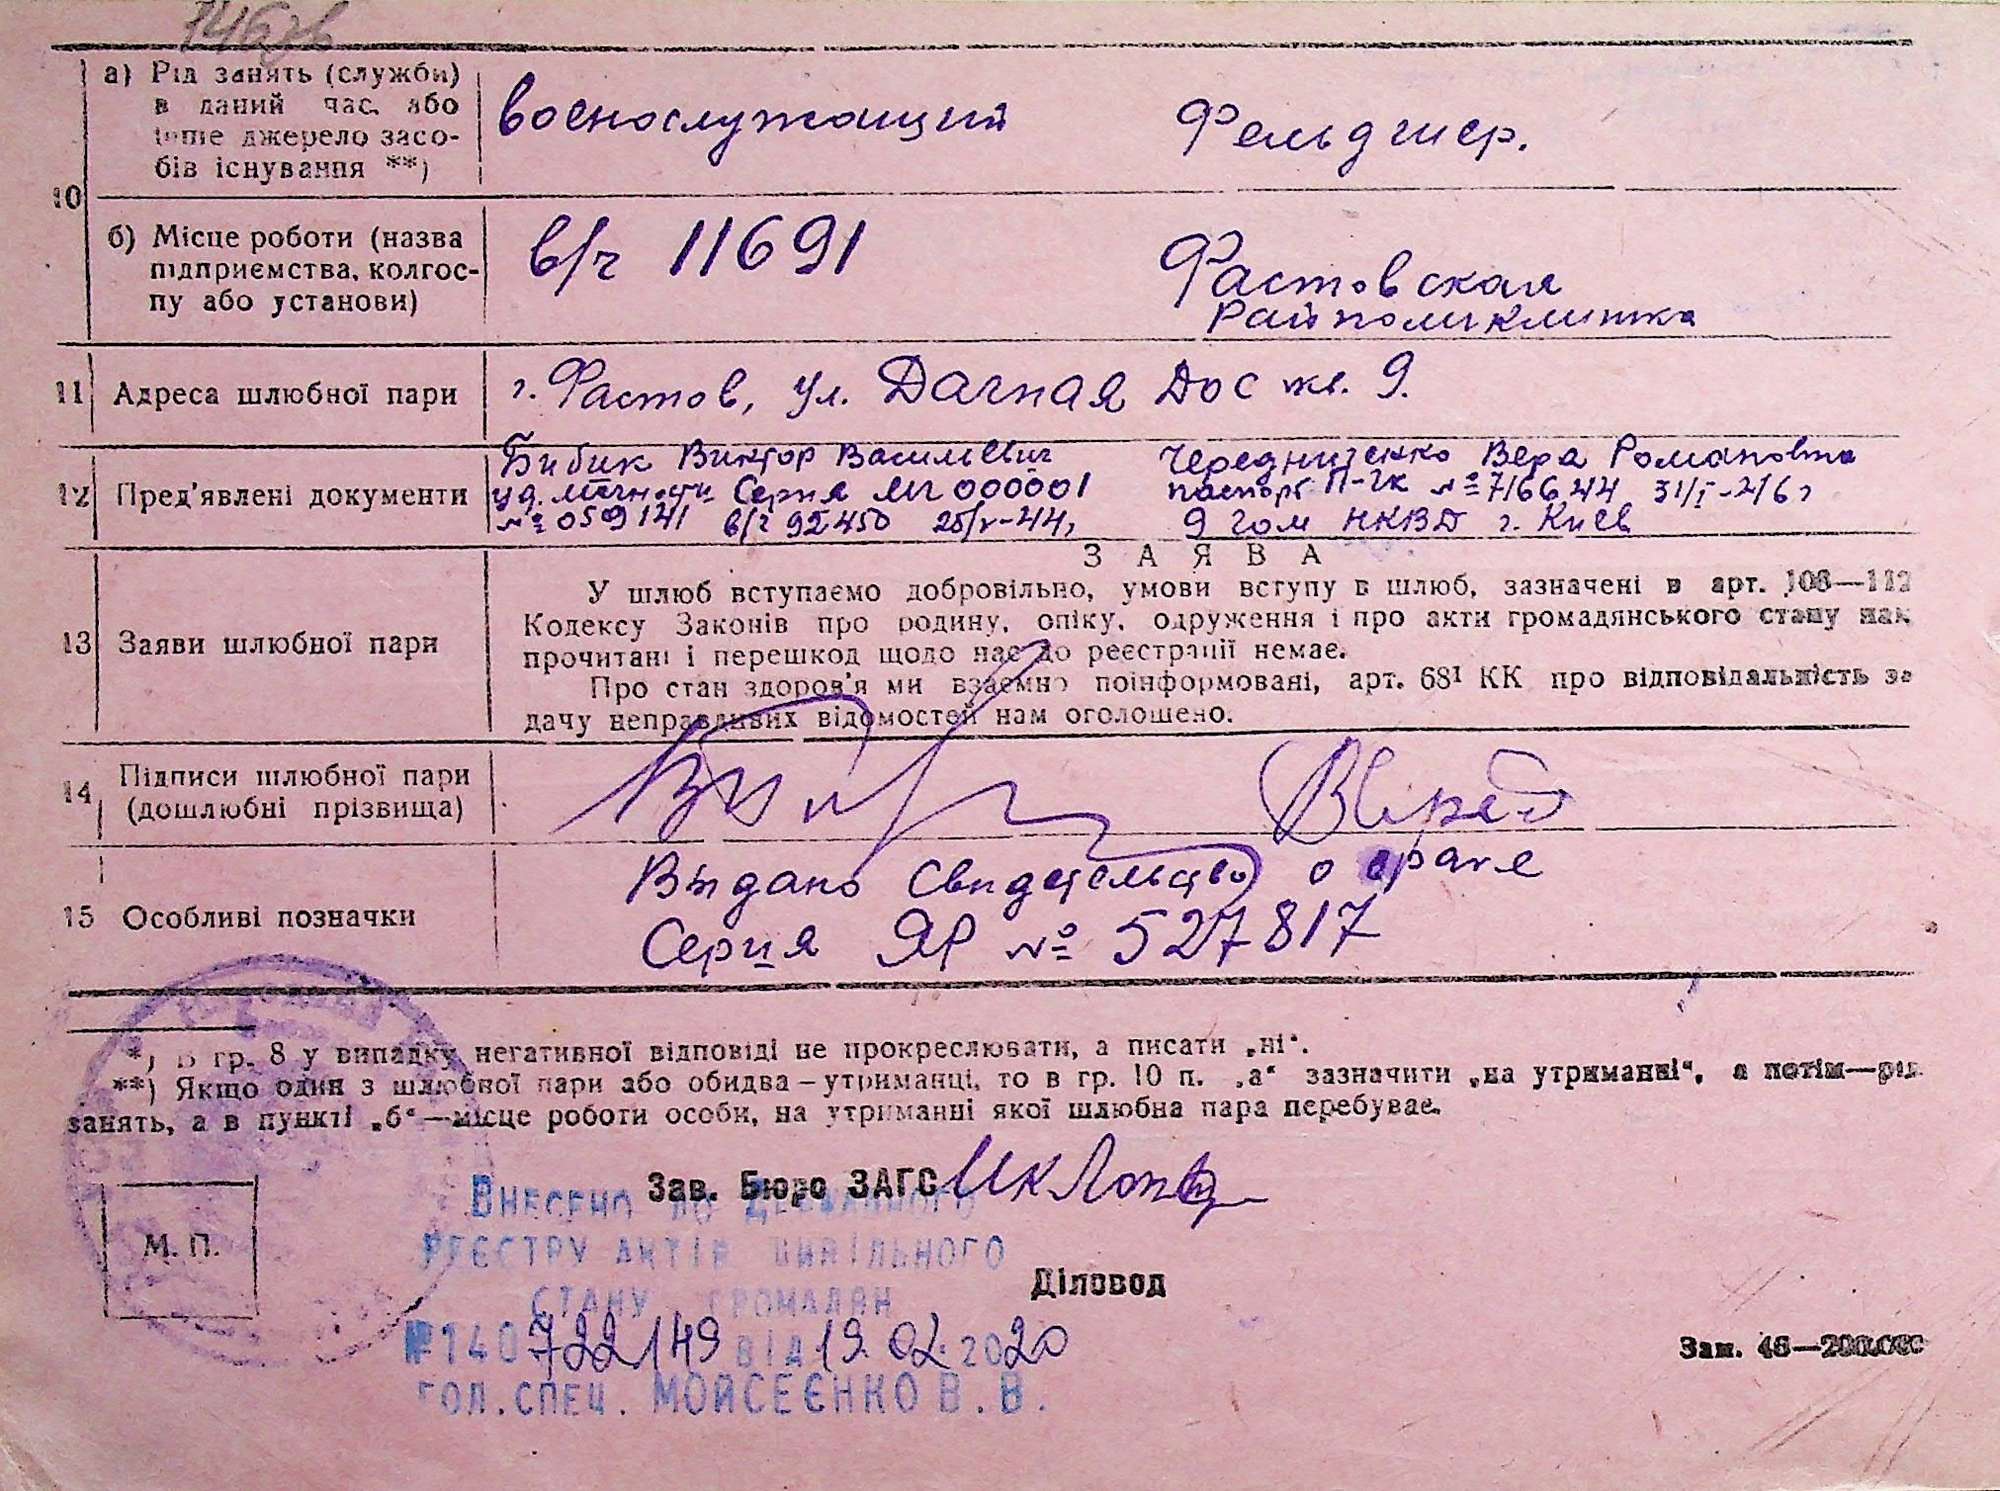 10
а) Рід занять (служби)
в даний час, або
інше джерело засо-
бів існування **)
военослужащий
Фельдшер.
б) Місце роботи (назва
підприємства, колгос-
пу або установи)
в/ч 11691
Фастовская
Райполиклиника
11 Адреса шлюбної пари
г. Фастов, ул. Дачная Дос кв. 9.
12 Пред'явлені документи
Бибик Виктор Васильевич
уд. личности Серия МГ 000001
№ 059141 в/ч 92450 25/V-44г
Чередниченко Вера Романовна
паспорт П-ЧК №716644 31/I-46г
9 Гом НКВД г. Киев
13 Заяви шлюбної пари
ЗАЯВА
У шлюб вступаємо добровільно, умови вступу в шлюб, зазначені в арт. 108—112
Кодексу Законів про родину, опіку, одруження і про акти громадянського стану нам
прочитані і перешкод щодо нас до реєстрації немає.
Про стан здоров'я ми взаємно поінформовані, арт. 68¹ КК про відповідальність за
дачу неправдивих відомостей нам оголошено.
14 Підписи шлюбної пари
(дошлюбні прізвища)
15 Особливі позначки
Выдано Свидетельство о браке
Серия ЯР № 527817
*) В гр. 8 у випадку негативної відповіді не прокреслювати, а писати „ні“.
**) Якщо один з шлюбної пари або обидва – утриманці, то в гр. 10 п. „а“ зазначити „на утриманні“, а потім—рід
занять, а в пункті „б“—місце роботи особи, на утриманні якої шлюбна пара перебуває.
Зав. Бюро ЗАГС
М. П.
Внесено до Державного
реєстру актів цивільного
стану громадян
Діловод
№140722149 від 19.02.2020
гол.спец. Мойсеєнко В.В.
Зам. 46—200.000